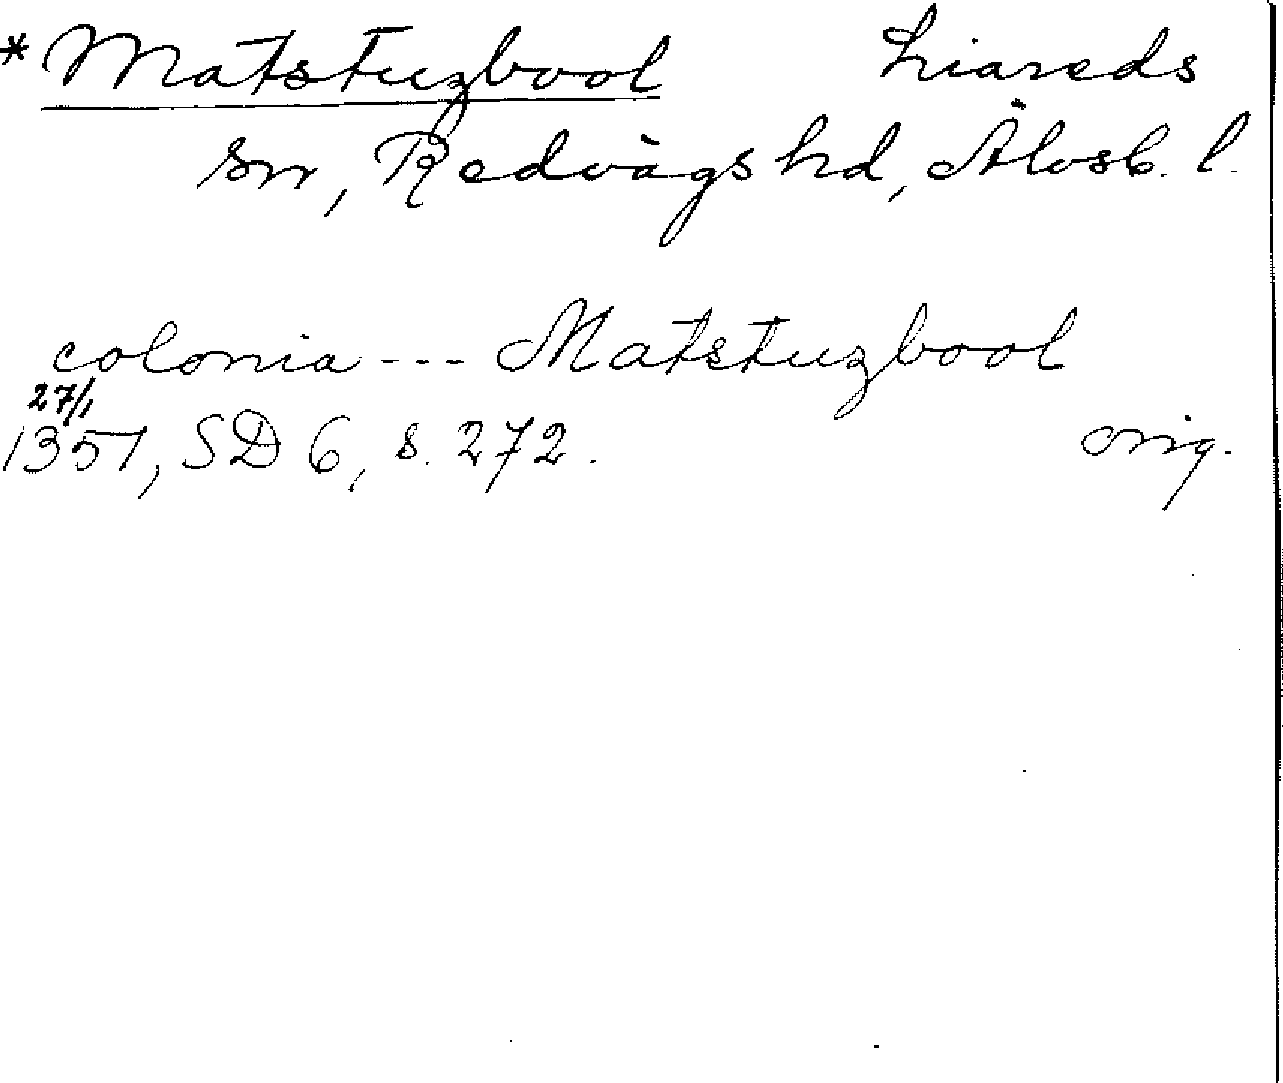 * Matstuzbool Liareds
sn, Redvägs hd, Älvsb. l.
colonia --- Matstuzbool
27/1
1351, SD 6, s. 272. orig.